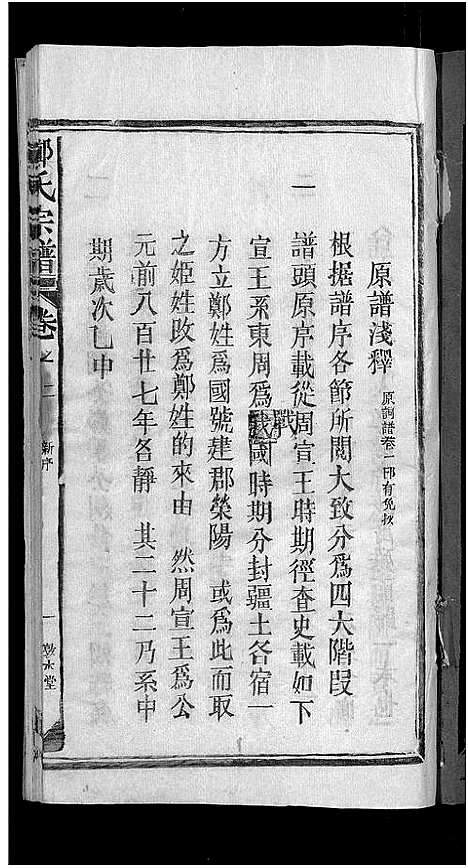 原譜淺釋 原詞譜卷二 即有免敘
根据譜序各節所閱大致分爲四大階段
一 譜頭原序載從周宣王時期徑查史載如下
宣王系東周爲戰國時期分封疆土各宿一
戰
方立鄭姓爲國號建郡滎陽 或爲此而取
之姬姓改爲鄭姓的來由 然周宣王爲公
元前八百廿七年名靜 其二十二乃系中
期歲次乙申
鄭氏宗譜 卷之二 新序 一 堂